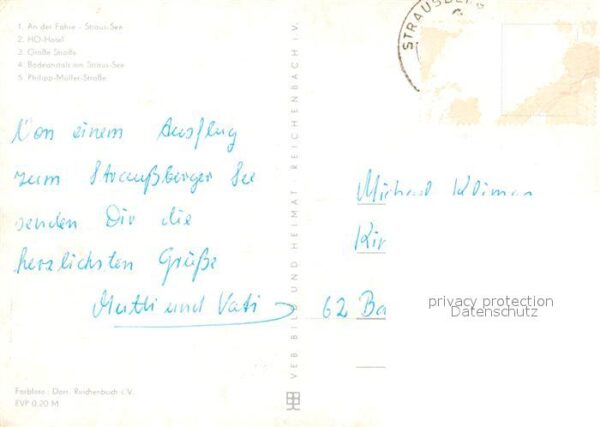 1. An der Fähre - Straus-See
2. HO-Hotel
3. Große Straße
4. Badeanstalt am Straus-See
5. Philipp-Müller-Straße
Von einem Ausflug
zum Straußberger See
senden Dir die
herzlichsten Grüße
Mutti und Vati
Farbfoto: Darr, Reichenbach i. V.
EVP 0,20 M
VEB BILD UND HEIMAT REICHENBACH i. V.
STRAUSBERG
Michael
Kir
62 Ba
privacy protection
Datenschutz